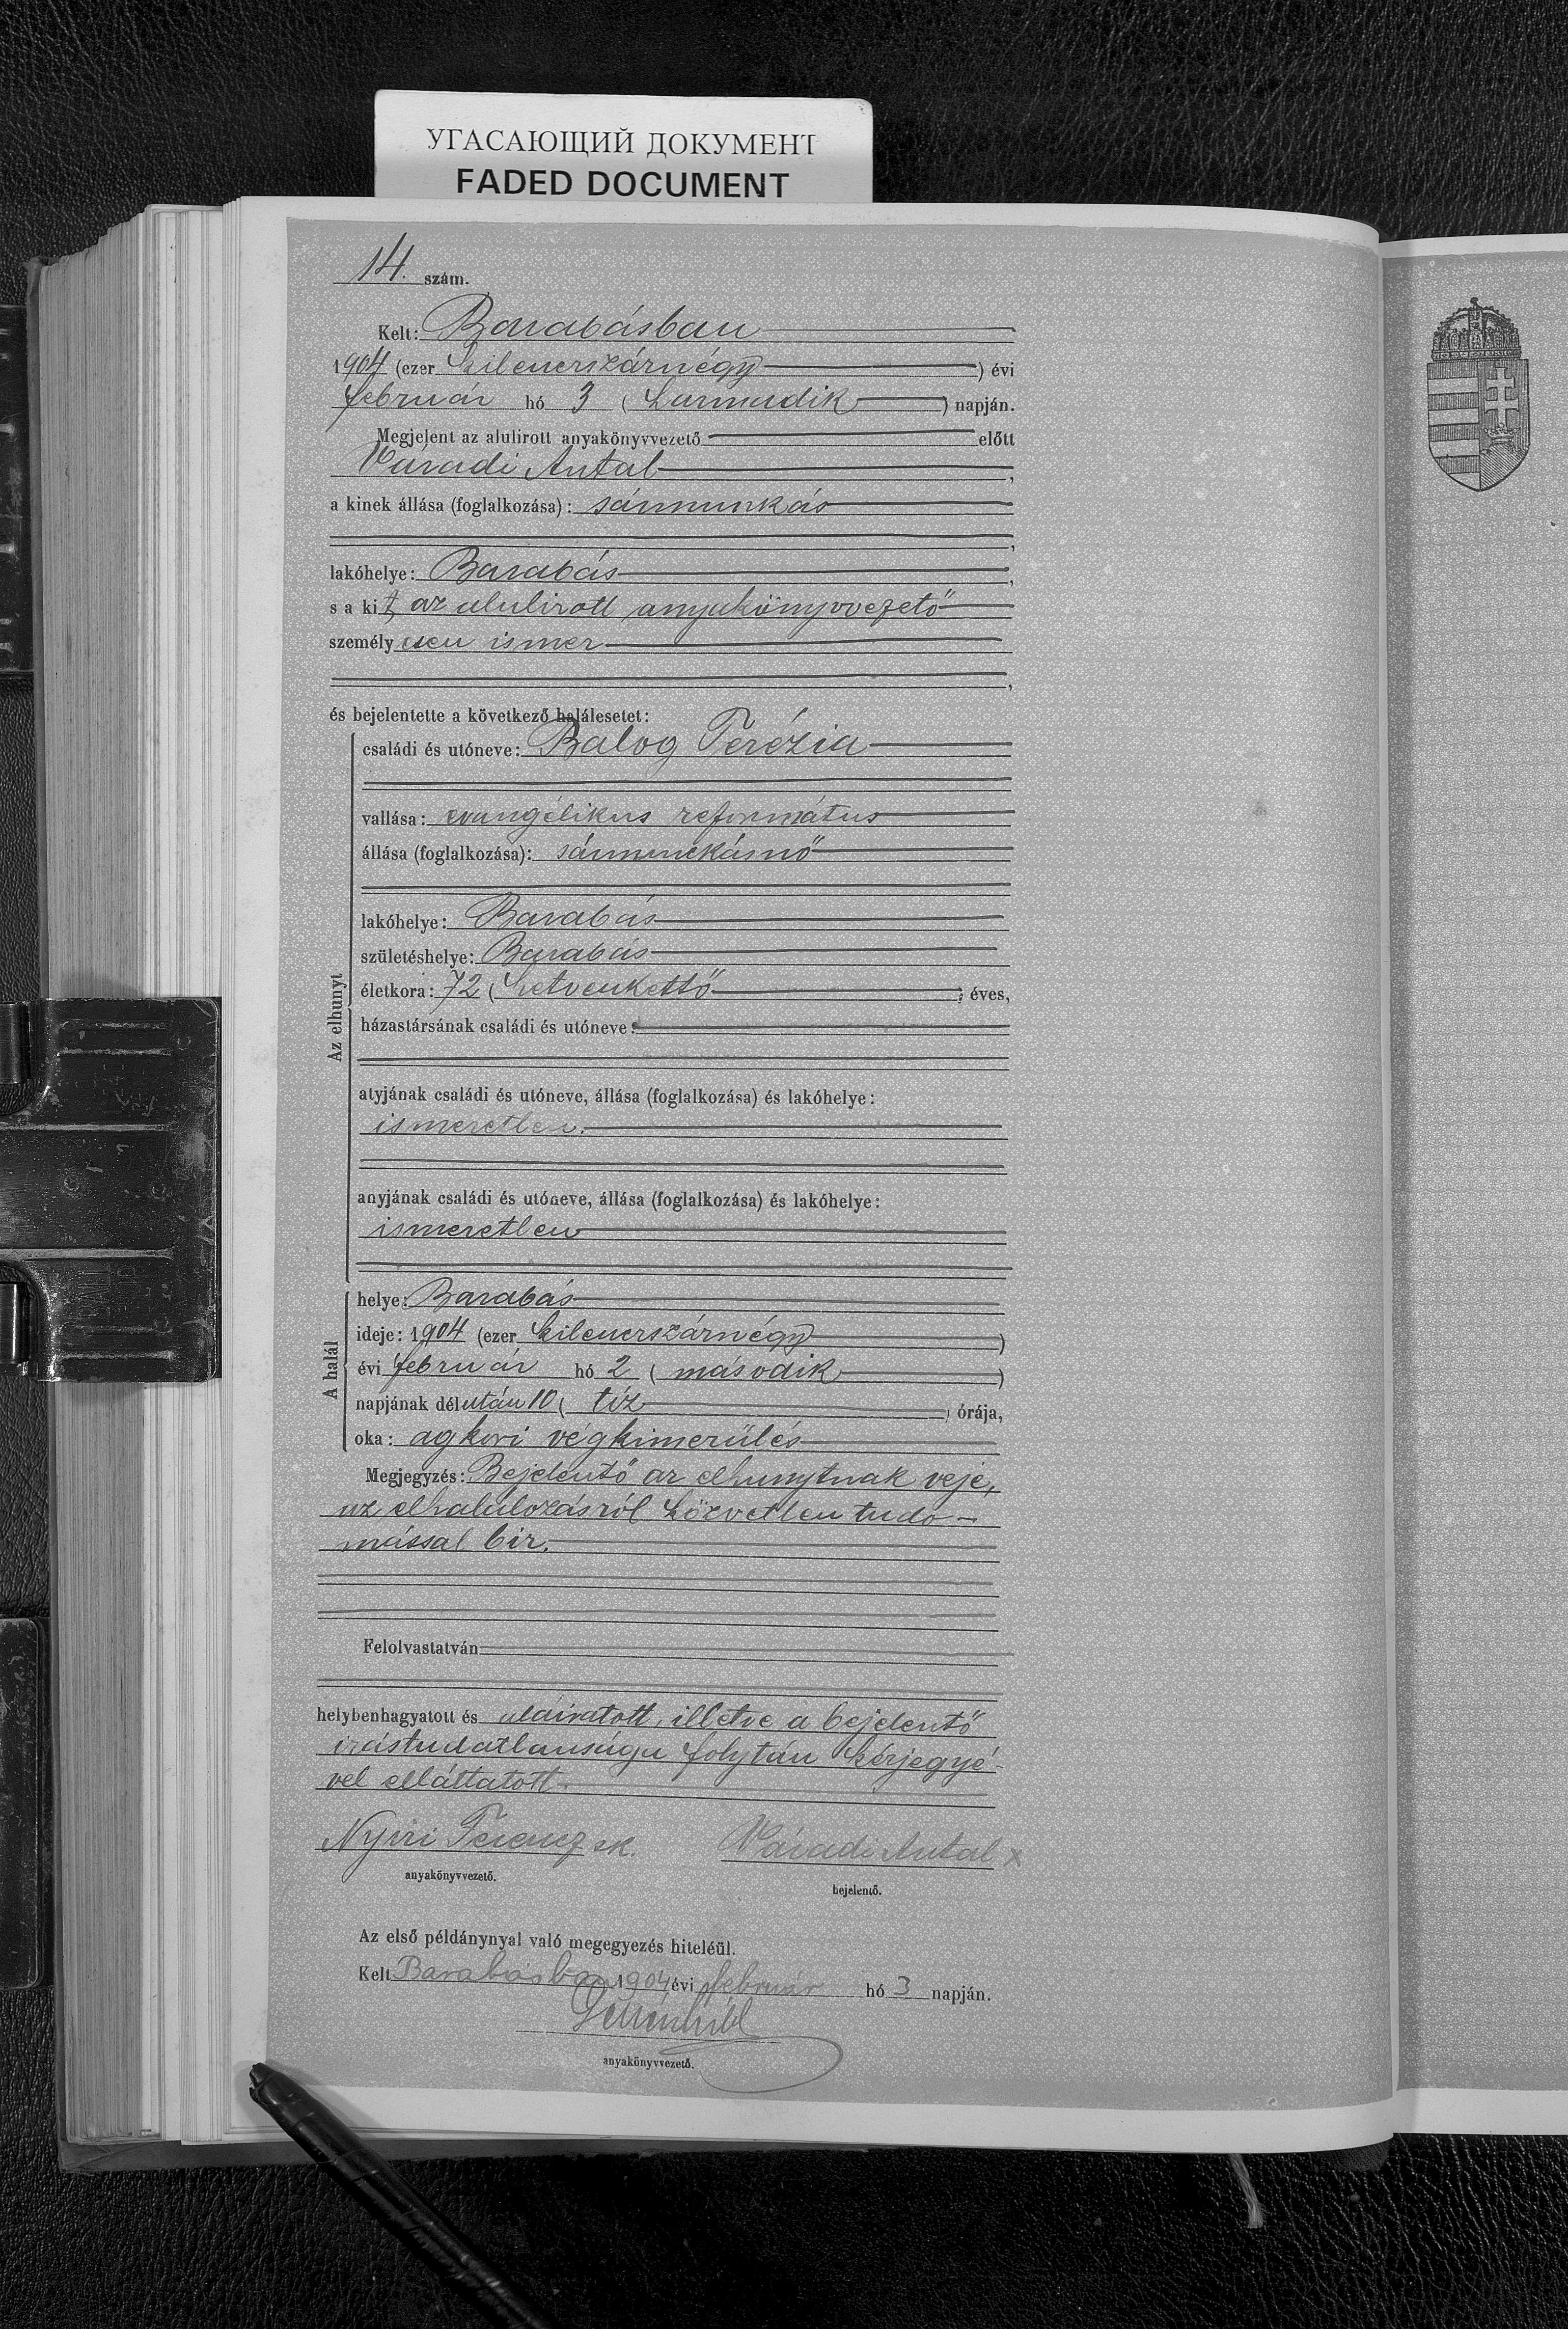 УГАСАЮЩИЙ ДОКУМЕНТ
FADED DOCUMENT
14. szám.
Kelt: Barabásban
1904 (ezer kilencszáznégy) évi
február hó 3 (harmadik) napján.
Megjelent az alulirott anyakönyvvezető előtt
Váradi Antal,
a kinek állása (foglalkozása): sármunkás
lakóhelye: Barabás,
s a kit az alulirott anyakönyvvezető
személyesen ismer,
és bejelentette a következő halálesetet:
Az elhunyt
családi és utóneve: Balog Terézia
vallása: evangélikus református
állása (foglalkozása): sármunkásnő
lakóhelye: Barabás
születéshelye: Barabás
életkora: 72 (hetvenkettő) éves,
házastársának családi és utóneve:
atyjának családi és utóneve, állása (foglalkozása) és lakóhelye:
ismeretlen.
anyjának családi és utóneve, állása (foglalkozása) és lakóhelye:
ismeretlen
A halál
helye: Barabás
ideje: 1904 (ezer kilencszáznégy)
évi február hó 2 (második)
napjának délután 10 (tíz) órája,
oka: agkori végkimerülés
Megjegyzés: Bejelentő az elhunytnak veje,
az elhalálozásról közvetlen tudo-
mással bir.
Felolvastatván
helybenhagyatott és aláiratott, illetve a bejelentő
irástudatlansága folytán kézjegyé-
vel elláttatott.
Nyiri Ferencz sk. Váradi Antal x
anyakönyvvezető. bejelentő.
Az első példánynyal való megegyezés hiteléül.
Kelt Barabásban 1904 évi február hó 3 napján.
anyakönyvvezető.